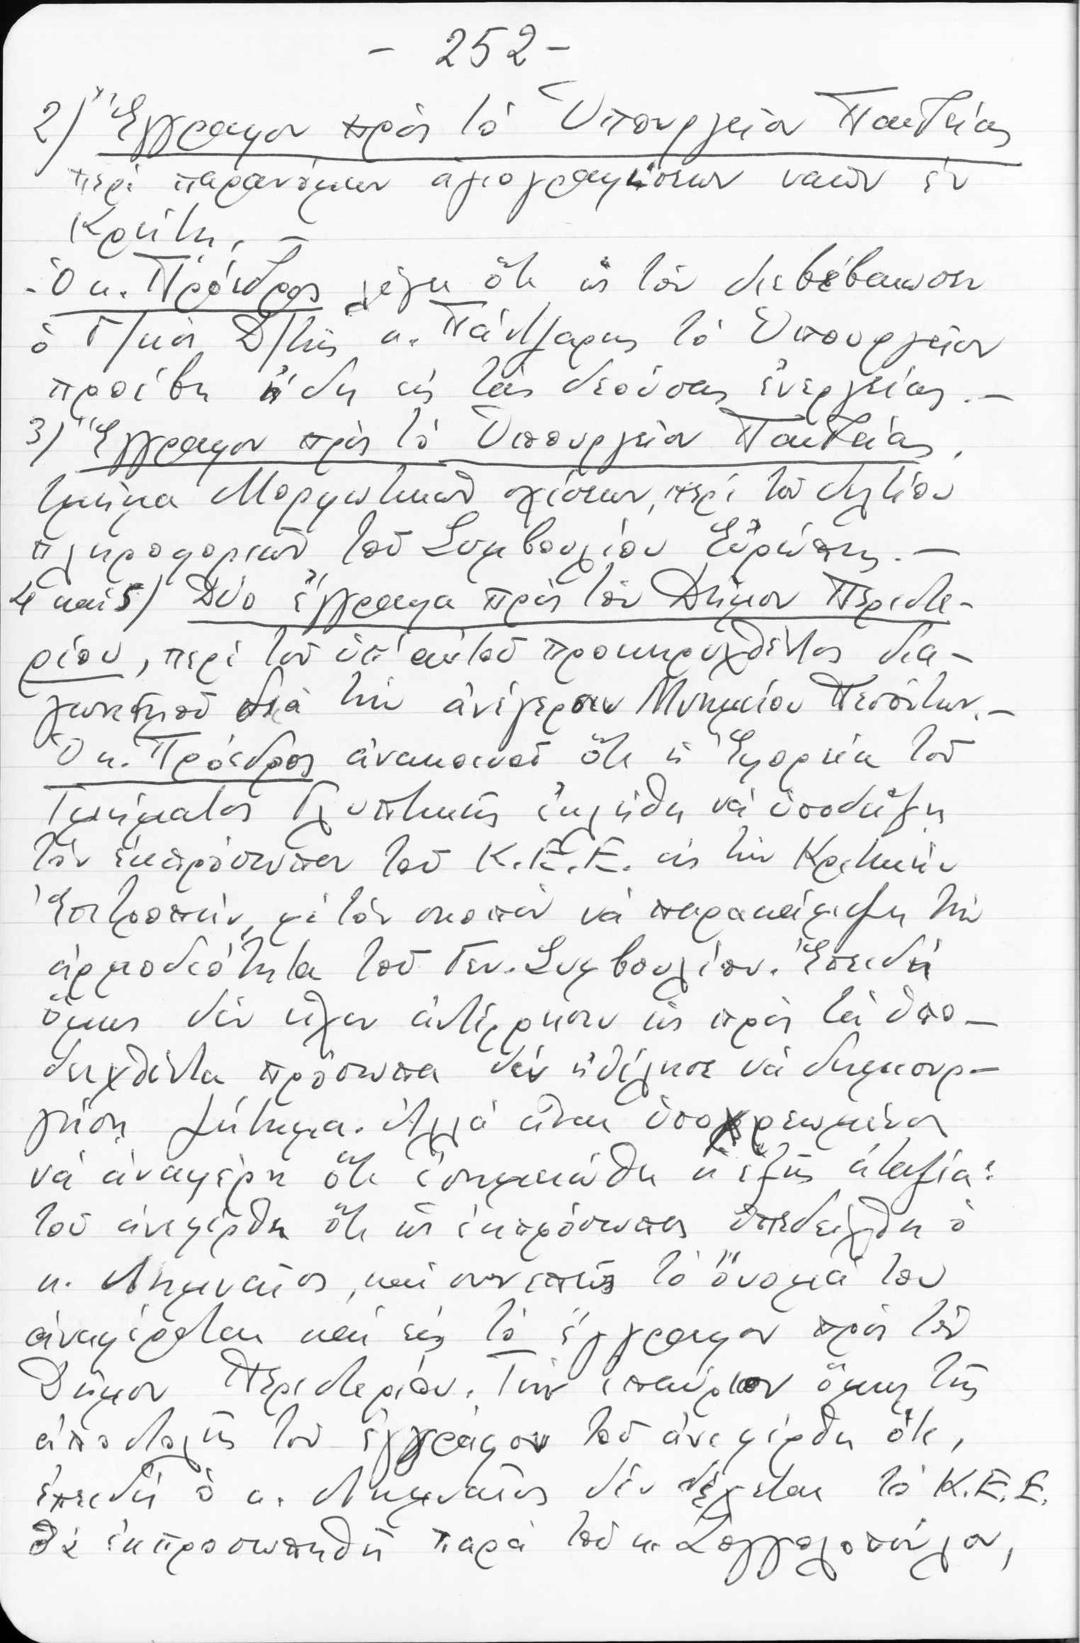 - 252 -
2) Ἔγγραφον πρὸς τὸ Ὑπουργεῖον Παιδείας
περὶ παρανόμων ἁγιογραφήσεων ναῶν ἐν
Κρήτῃ. -
- Ὁ κ. Πρόεδρος λέγει ὅτι ὡς τὸν διεβεβαίωσεν
ὁ Γ/κὸς Δ/τὴς κ. Πάντζαρης τὸ Ὑπουργεῖον
προέβη ἤδη εἰς τὰς δεούσας ἐνεργείας. -
3) Ἔγγραφον πρὸς τὸ Ὑπουργεῖον Παιδείας,
τμῆμα Μορφωτικῶν σχέσεων, περὶ τοῦ δελτίου
πληροφοριῶν τοῦ Συμβουλίου Εὐρώπης. -
4 καὶ 5) Δύο ἔγγραφα πρὸς τὸν Δῆμον Περιστε-
ρίου, περὶ τοῦ ὑπ' αὐτοῦ προκηρυχθέντος δια-
γωνισμοῦ διὰ τὴν ἀνέγερσιν Μνημείου Πεσόντων. -
Ὁ κ. Πρόεδρος ἀνακοινοῖ ὅτι ἡ Ἐφορεία τοῦ
Τμήματος Γλυπτικῆς ἐκλήθη νὰ ὑποδείξῃ
τὸν ἐκπρόσωπον τοῦ Κ.Ε.Ε. εἰς τὴν Κριτικὴν
Ἐπιτροπήν, μὲ τὸν σκοπὸν νὰ παρακάμψῃ τὴν
ἁρμοδιότητα τοῦ Γεν. Συμβουλίου. Ἐπειδὴ
ὅμως δὲν εἶχεν ἀντίρρησιν ὡς πρὸς τὰ ὑπο-
δειχθέντα πρόσωπα δὲν ἠθέλησε νὰ δημιουρ-
γήσῃ ζήτημα. Ἀλλὰ εἶναι ὑποχρεωμένος
νὰ ἀναφέρῃ ὅτι ἐσημειώθη ἡ ἑξῆς ἀταξία:
τοῦ ἀνεφέρθη ὅτι ὡς ἐκπρόσωπος ὑπεδείχθη ὁ
κ. Λημναῖος, καὶ συνεπῶς τὸ ὄνομά του
ἀναφέρεται καὶ εἰς τὸ ἔγγραφον πρὸς τὸν
Δῆμον Περιστερίου. Τὴν ἐπαύριον ὅμως τῆς
ἀποστολῆς τοῦ ἐγγράφου τοῦ ἀνεφέρθη ὅτι,
ἐπειδὴ ὁ κ. Λημναῖος δὲν δέχεται τὸ Κ.Ε.Ε.
θὰ ἐκπροσωπηθῇ παρὰ τοῦ κ. Ζογγολοπούλου,